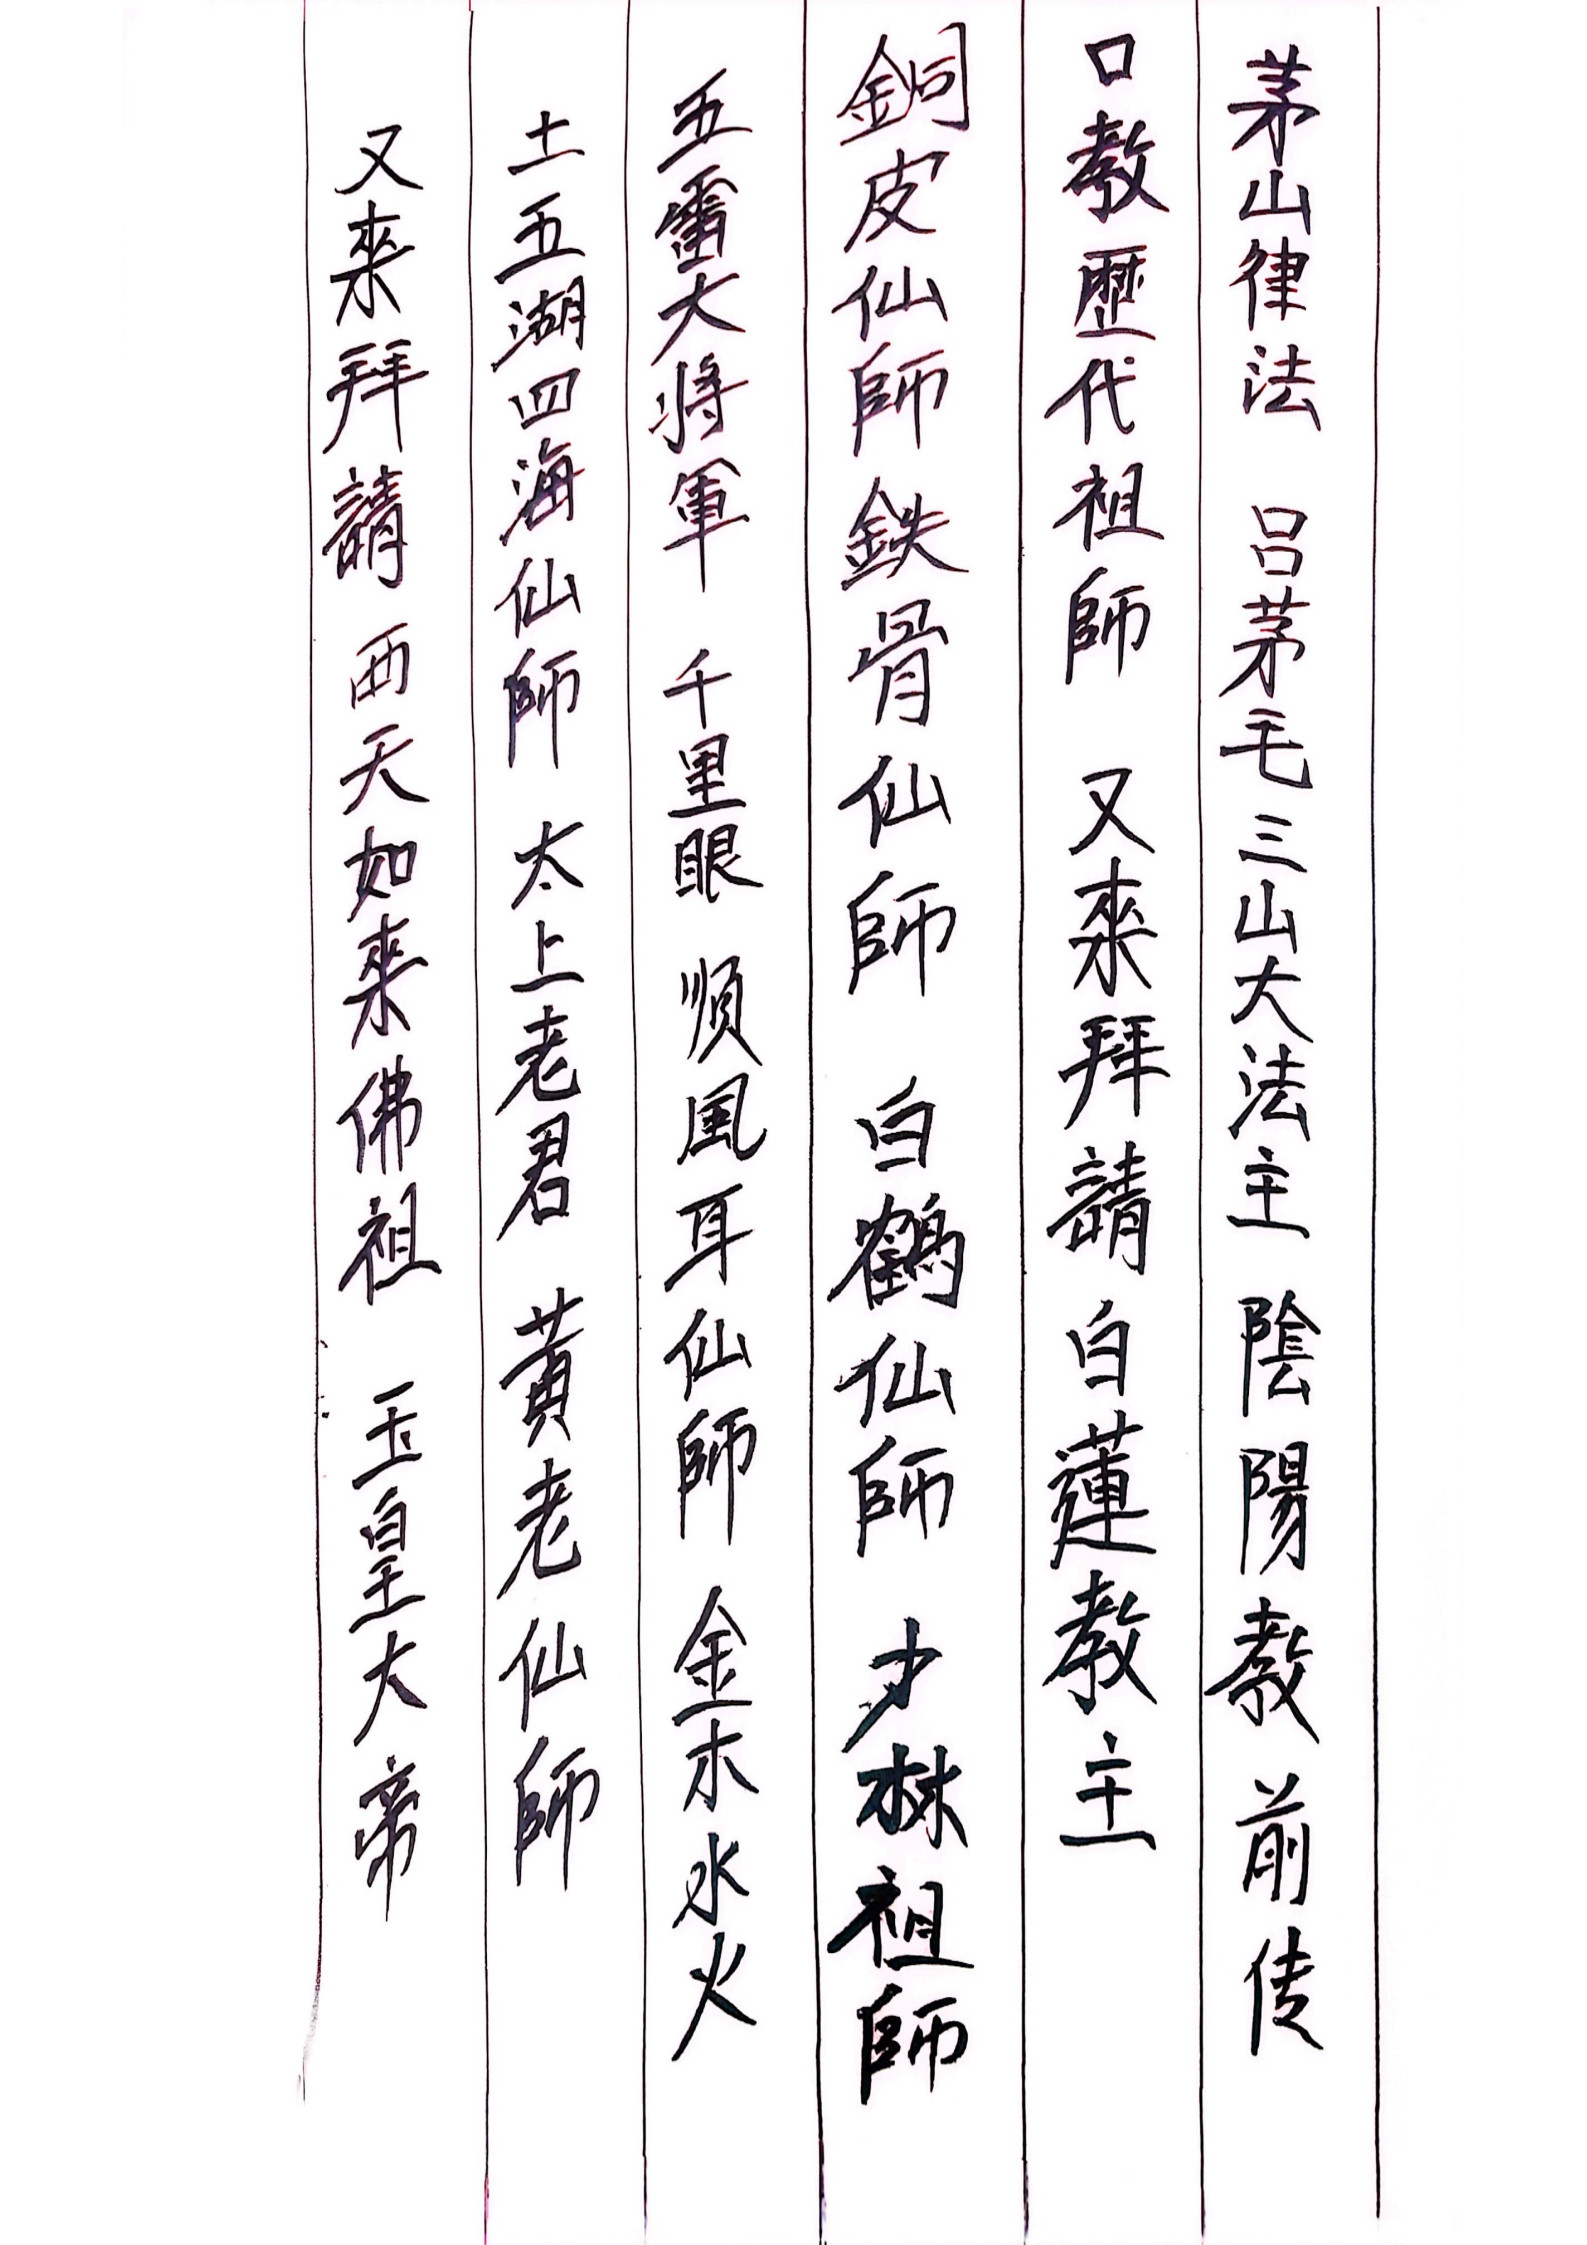 茅山律法 呂茅毛三山大法主 陰陽教前传
口教歷代祖師 又來拜請白蓮教主
銅皮仙師鉄骨仙師 白鶴仙師 少林祖師
五雷大将軍 千里眼 順風耳仙師 金木水火
土五湖四海仙師 太上老君 黃老仙師
又來拜請 西天如來佛祖 玉皇大帝